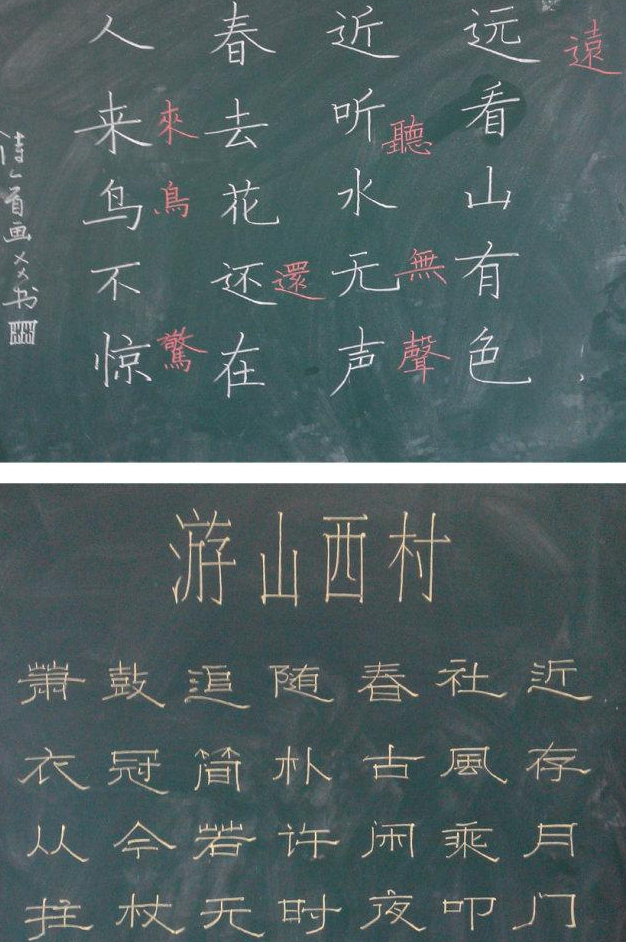 远看山有色
遠
近听水无声
聽無聲
春去花还在
還
人来鸟不惊
來鳥驚
游山西村
蕭鼓追随春社近
衣冠简朴古風存
从今若许闲乘月
拄杖无时夜叩门